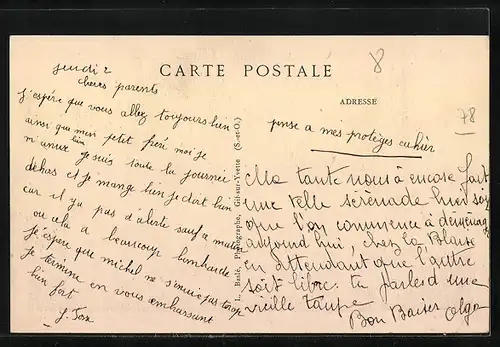 CARTE POSTALE
ADRESSE
8
78
jeudi 2
chers parents
j'espère que vous allez toujours bien
ainsi que mon petit frère moi je
m'amuse bien je suis toute la journée
dehors et je mange bien je dort bien
car il y a pas d'alerte sauf a matin
ou cela a beaucoup bombardé
je espère que michel ne s'ennuie pas trop
je termine en vous embrassant
bien fort
L. Basle, Photographe, Gif-sur-Yvette (S.-et-O.)
pense a mes protèges cahier
Ma tante nous à encore fait
une telle serenade hier soir
que l'on commence à déménager
aujourd'hui, chez la Blaise
en attendant que l'autre
soit libre. tu parles d'une
vieille taupe
Bon Baiser Olga